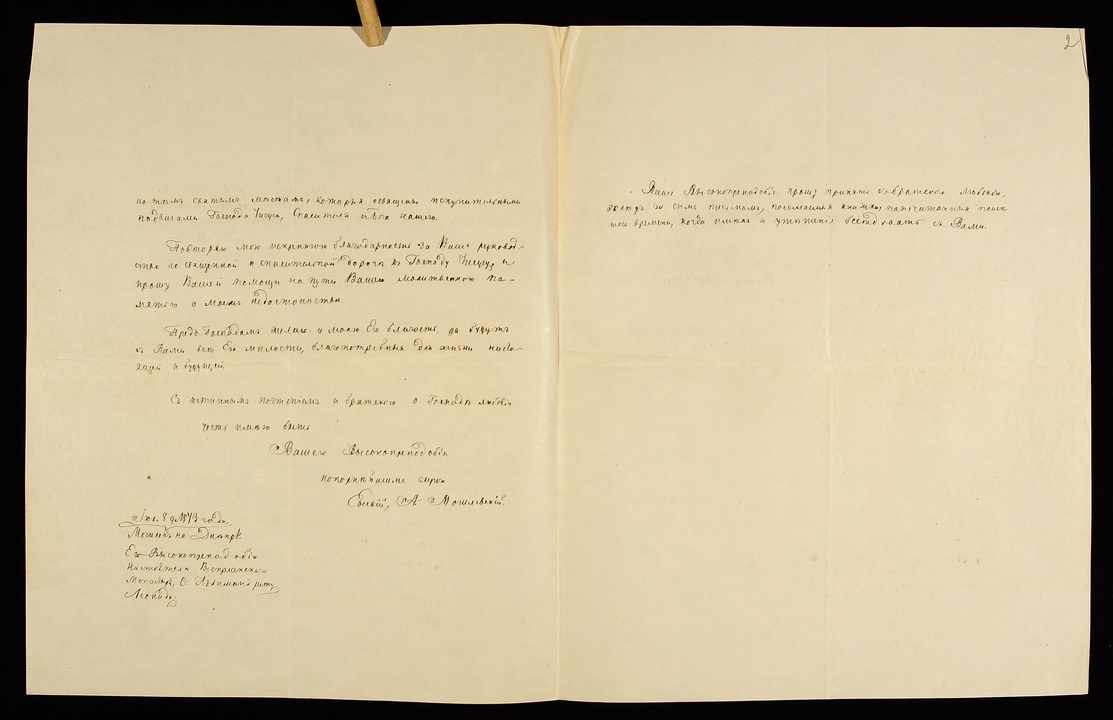 по тѣмъ святымъ мѣстамъ, которыя освящены искупительными
подвигами Господа Іисуса, Спасителя мѣра нашего.
Повторяю мою искреннюю благодарность за Ваше руковод-
ство по священной и спасительной дорогѣ къ Господу Іисусу, и
прошу Вашей помощи на пути Вашею молитвенною па-
мятью о моемъ недостоинствѣ.
Предъ Господомъ желаю, и молю Его благость, да будутъ
съ Вами всѣ Его милости, благопотребныя для жизни насто-
ящей и будущей.
Съ истиннымъ почтеніемъ и братскою о Господѣ любовію
честь имѣю быть
Вашего Высокопреподобія
покорнѣйшимъ
Евсевій, А. Могилевскій.
1873 года.
Могилевъ на Днѣпрѣ.
Его Высокопреподобію
Настоятелю Воскресенскаго
Монастыря, О. Архимандриту
Леониду.
2
Ваше Высокопреподобіе прошу принять съ братскою любовію,
вслѣдъ за симъ письмомъ, посылаемыя книжки, напечатанныя послѣ
того времени, когда имѣлъ я утѣшеніе бесѣдовать съ Вами.